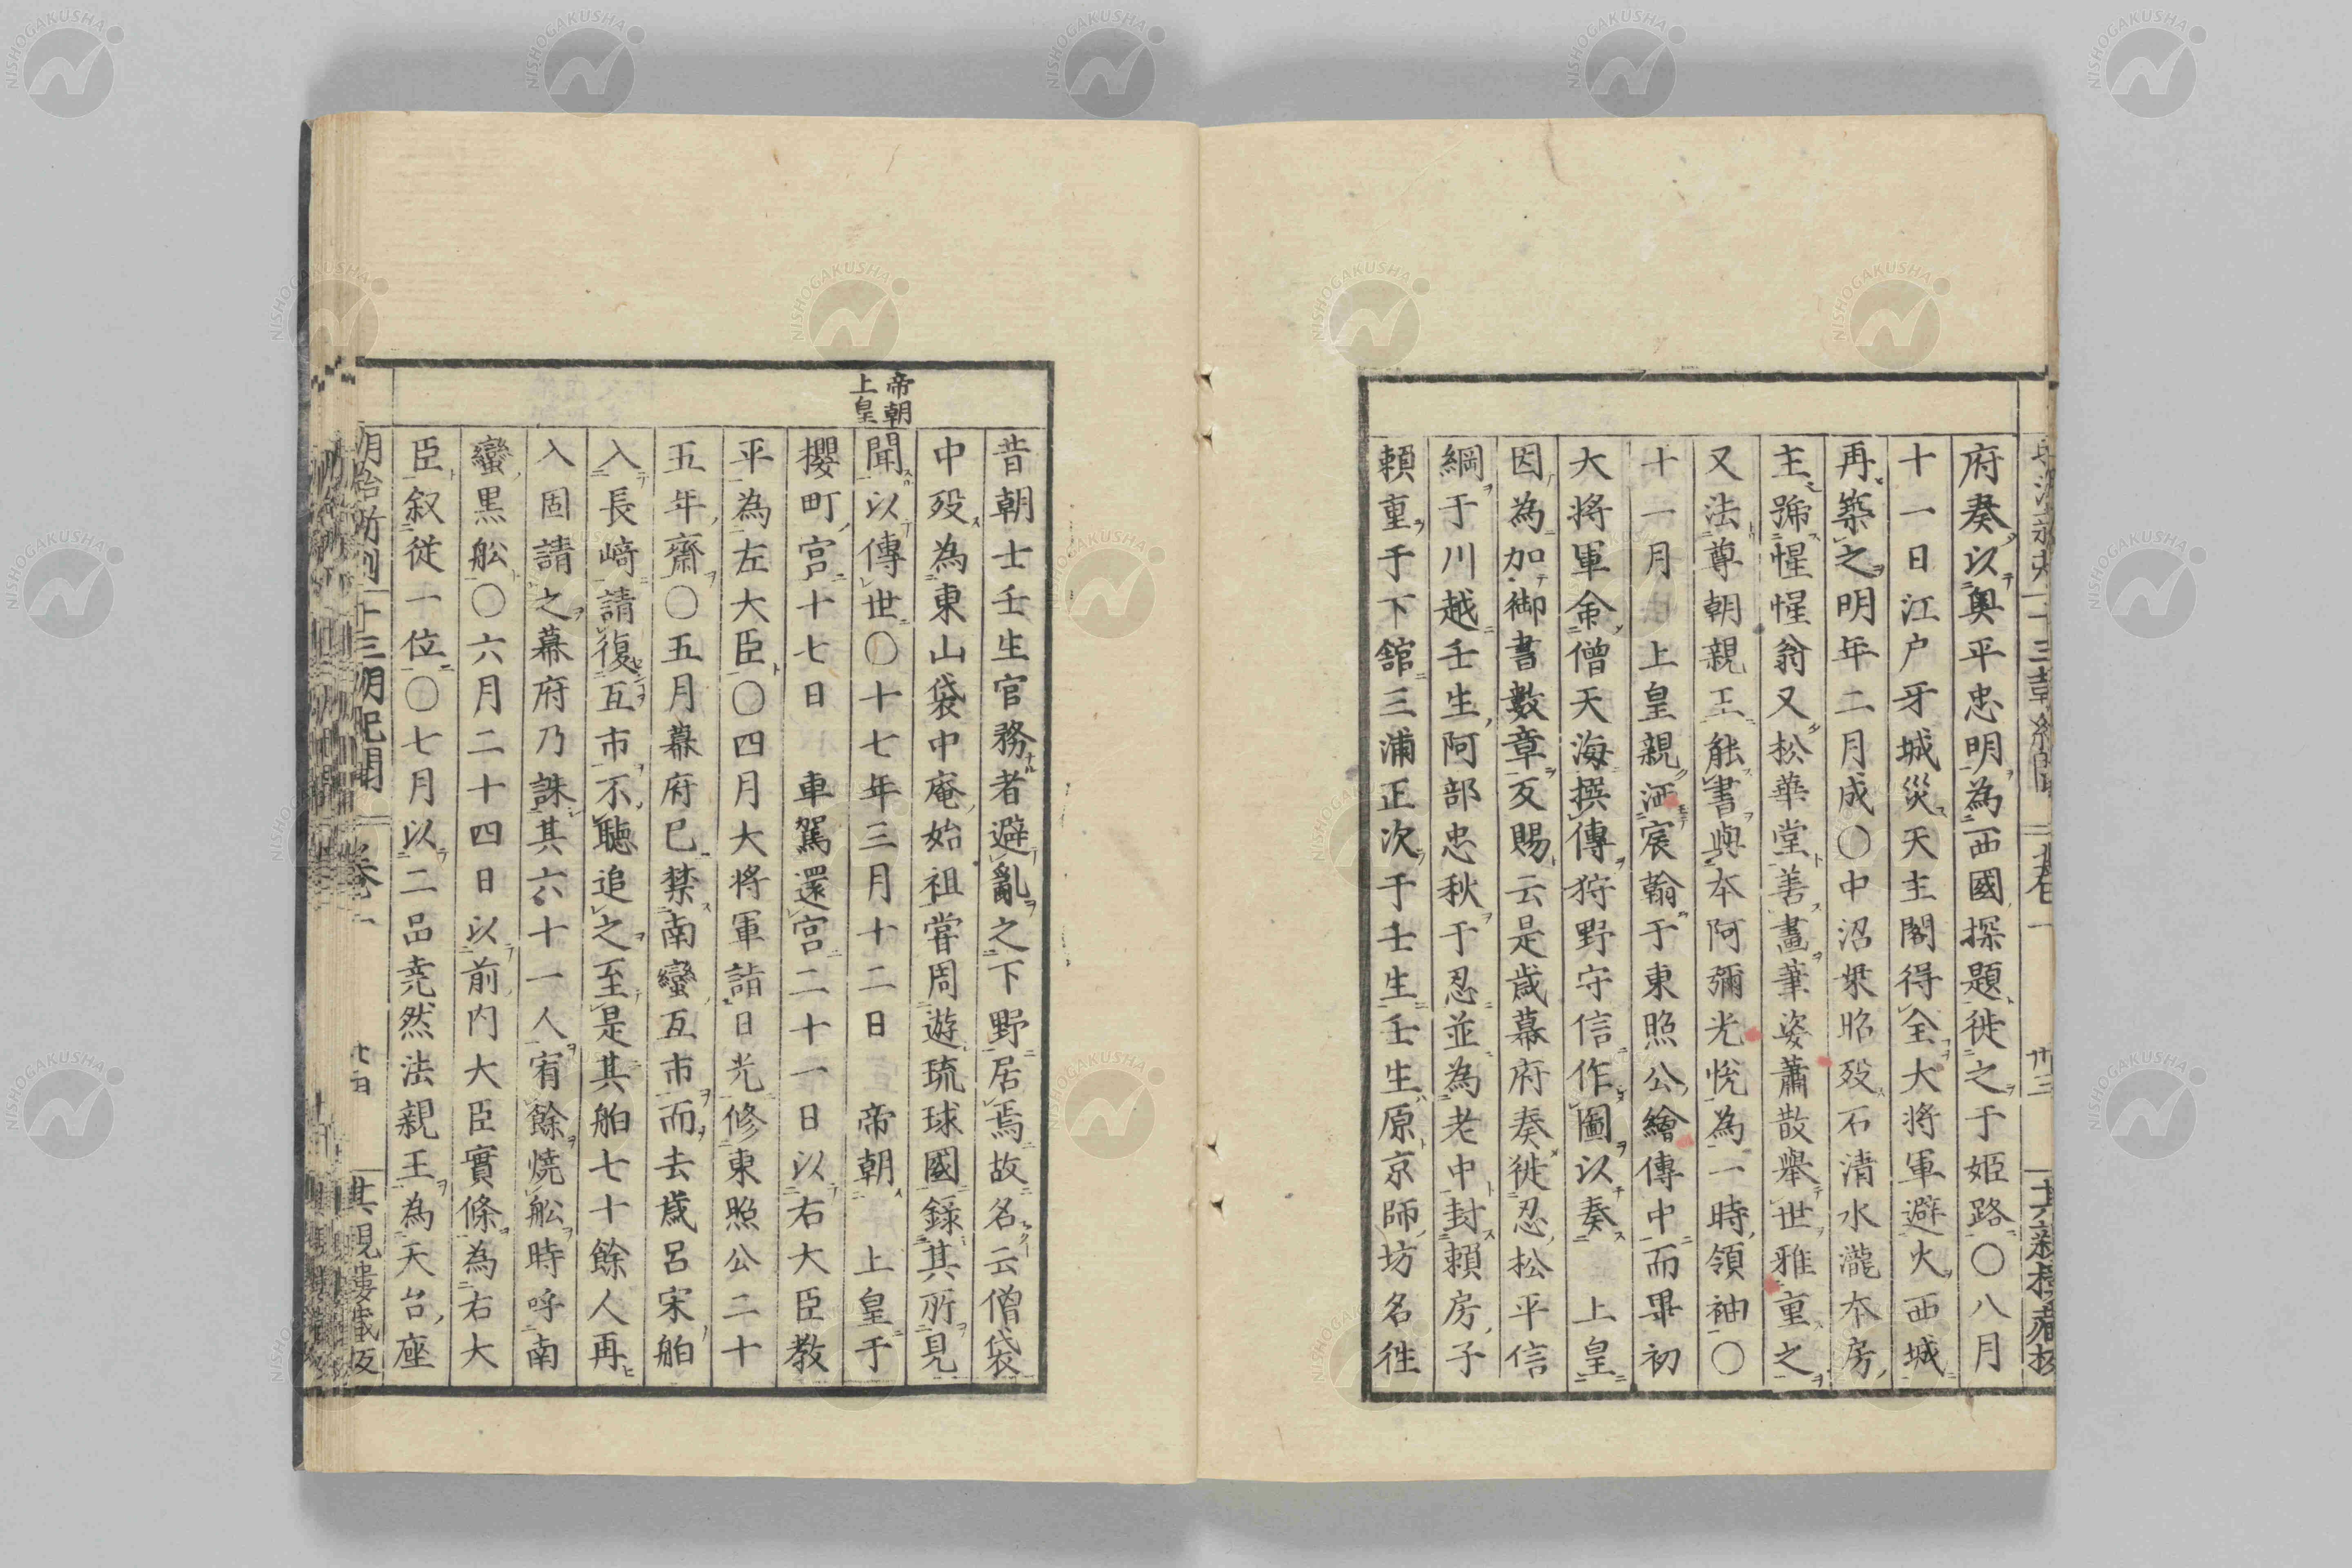 府奏以奥平忠明為西國探題徙之于姫路〇八月
十一日江戸牙城災天主閣得全大将軍避火西城
再築之明年二月成〇中沼
主號惺惺翁又松華堂善畫筆姿蕭散舉世雅重之
又法尊朝親王能書與本阿彌光悦為一時領袖〇
十一月 上皇親洒宸翰于東照公繪傳中而畢初
大将軍命僧天海撰傳狩野守信作圖以奏 上皇
因為加御書數章反賜云是歳幕府奏徙忍松平信
綱于川越壬生阿部忠秋于忍並為老中封頼房子
頼重于下舘三浦正次于壬生壬生原京師坊名往
昔朝士壬生官務者避亂之下野居焉故名云僧袋
中歿為東山袋中庵始祖嘗周遊琉球國錄其所見
帝朝
上皇
聞以傳世〇十七年三月十二日 帝朝 上皇于
櫻町宮十七日 車駕還宮二十一日以右大臣教
平為左大臣〇四月大将軍詣日光修東照公二十
五年齋〇五月幕府已禁南蠻互市而去歳呂宋舶
入長﨑請復互市不聽追之至是其舶七十餘人再
入固請之幕府乃誅其六十一人宥餘焼舩時呼南
蠻黒舩〇六月二十四日以前内大臣實條為右大
臣叙従一位〇七月以二品尭然法親王為天台座
NISHOGAKUSHA